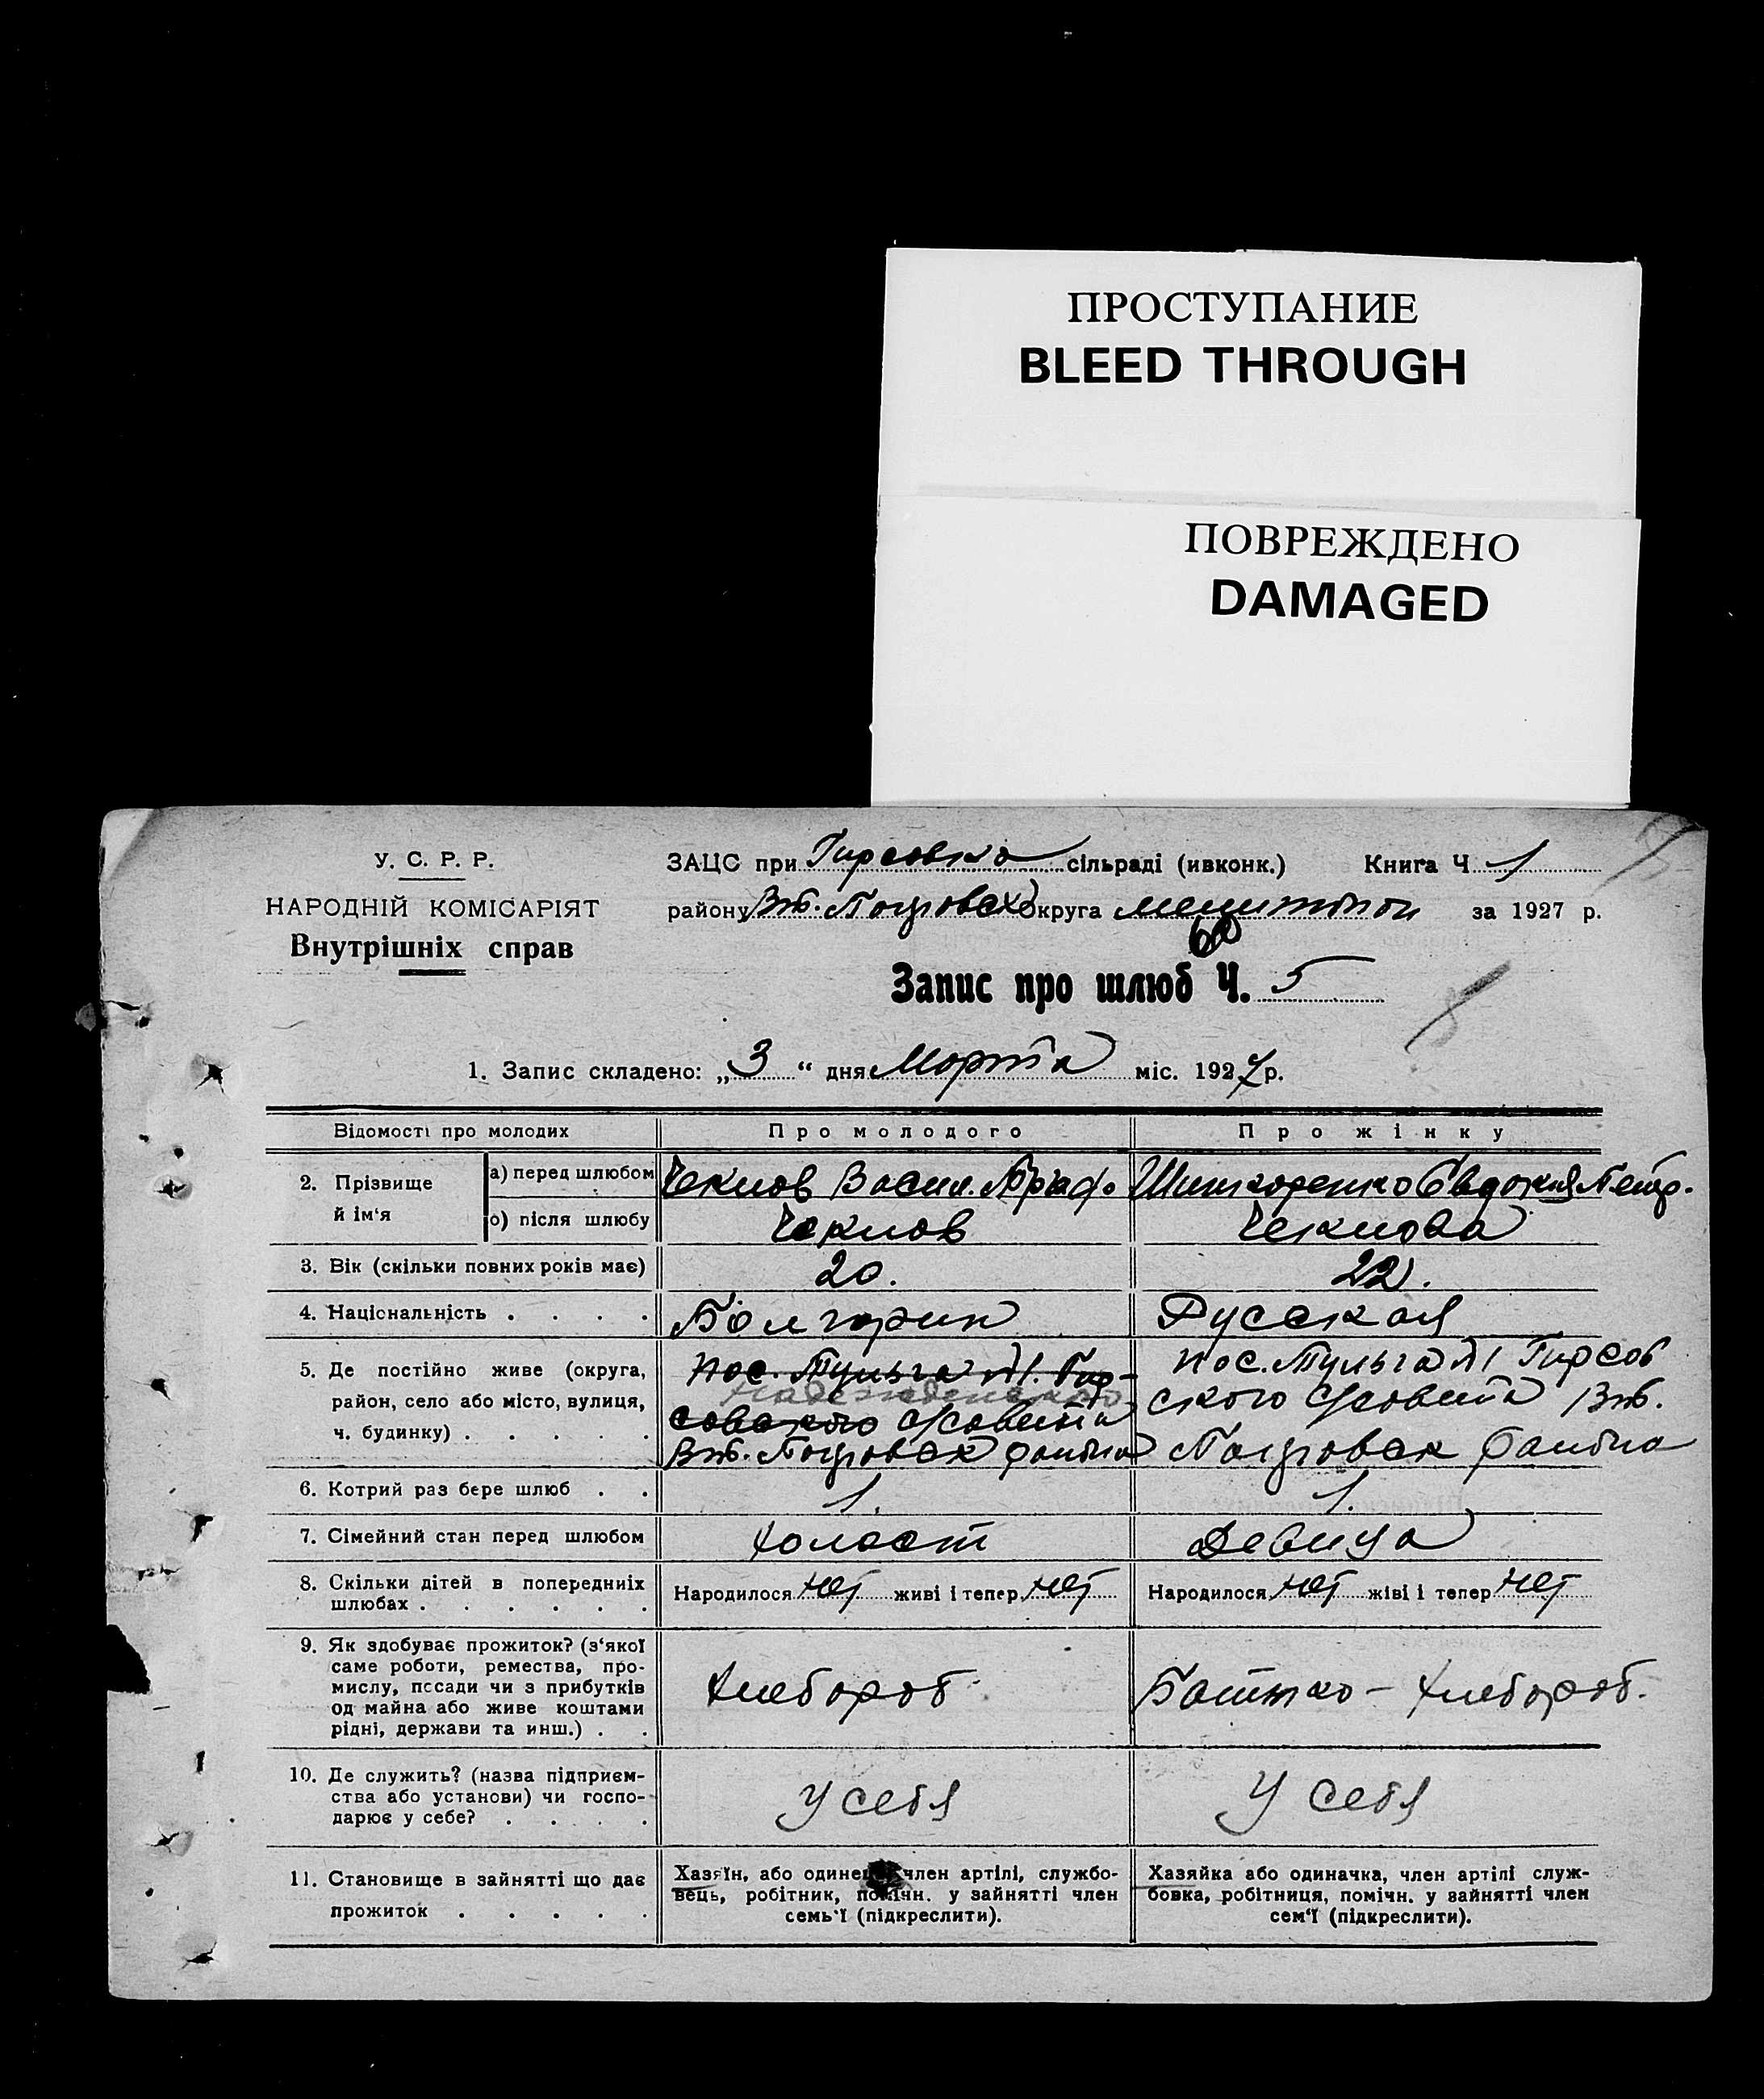 ПРОСТУПАНИЕ
BLEED THROUGH
ПОВРЕЖДЕНО
DAMAGED
У. С. Р. Р.
НАРОДНІЙ КОМІСАРІЯТ
Внутрішніх справ
ЗАЦС при Гирсовка сільраді (ивконк.) Книга Ч 1
району Вт. Покровск округа Мелитопол за 1927 р.
60
Запис про шлюб Ч. 5
1. Запис складено: „3“ дня Марта міс. 1927 р.
Відомості про молодих Про молодого Про жінку
2. Прізвище й ім‘я
а) перед шлюбом Чекнов Васил. Евдокия Петр.
о) після шлюбу Чекнов Чекнова
3. Вік (скільки повних років має) 20. 22.
4. Національність . . . . Болгарин Русская
5. Де постійно живе (округа, район, село або місто, вулиця, ч. будинку) . . . . .
пос. Тульга №1 Гир-
совского с/совета
Вт. Покровск района
пос. Тульга №1 Гирсов
ского с/совета Вт.
Покровск района
6. Котрий раз бере шлюб . . 1. 1.
7. Сімейний стан перед шлюбом холост Девица
8. Скільки дітей в попередниіх шлюбах . . . . . . Народилося нет живі і тепер нет Народилося нет жіві і тепер нет
9. Як здобуває прожиток? (з‘якої
саме роботи, ремества, про-
мислу, посади чи з прибутків
од майна або живе коштами
рідні, держави та инш.) . .
хлебороб Батько - хлебороб.
10. Де служить? (назва підприєм-
ства або установи) чи госпо-
дарює у себе? . . . .
у себя у себя
11. Становище в зайнятті що дає
прожиток . . . . .
Хазяїн, або одинец член артілі, службо-
вець, робітник, помічн. у зайнятті член
семь‘ї (підкреслити).
Хазяйка або одиначка, член артілі служ-
бовка, робітниця, помічн. у зайнятті член
сем‘ї (підкреслити).